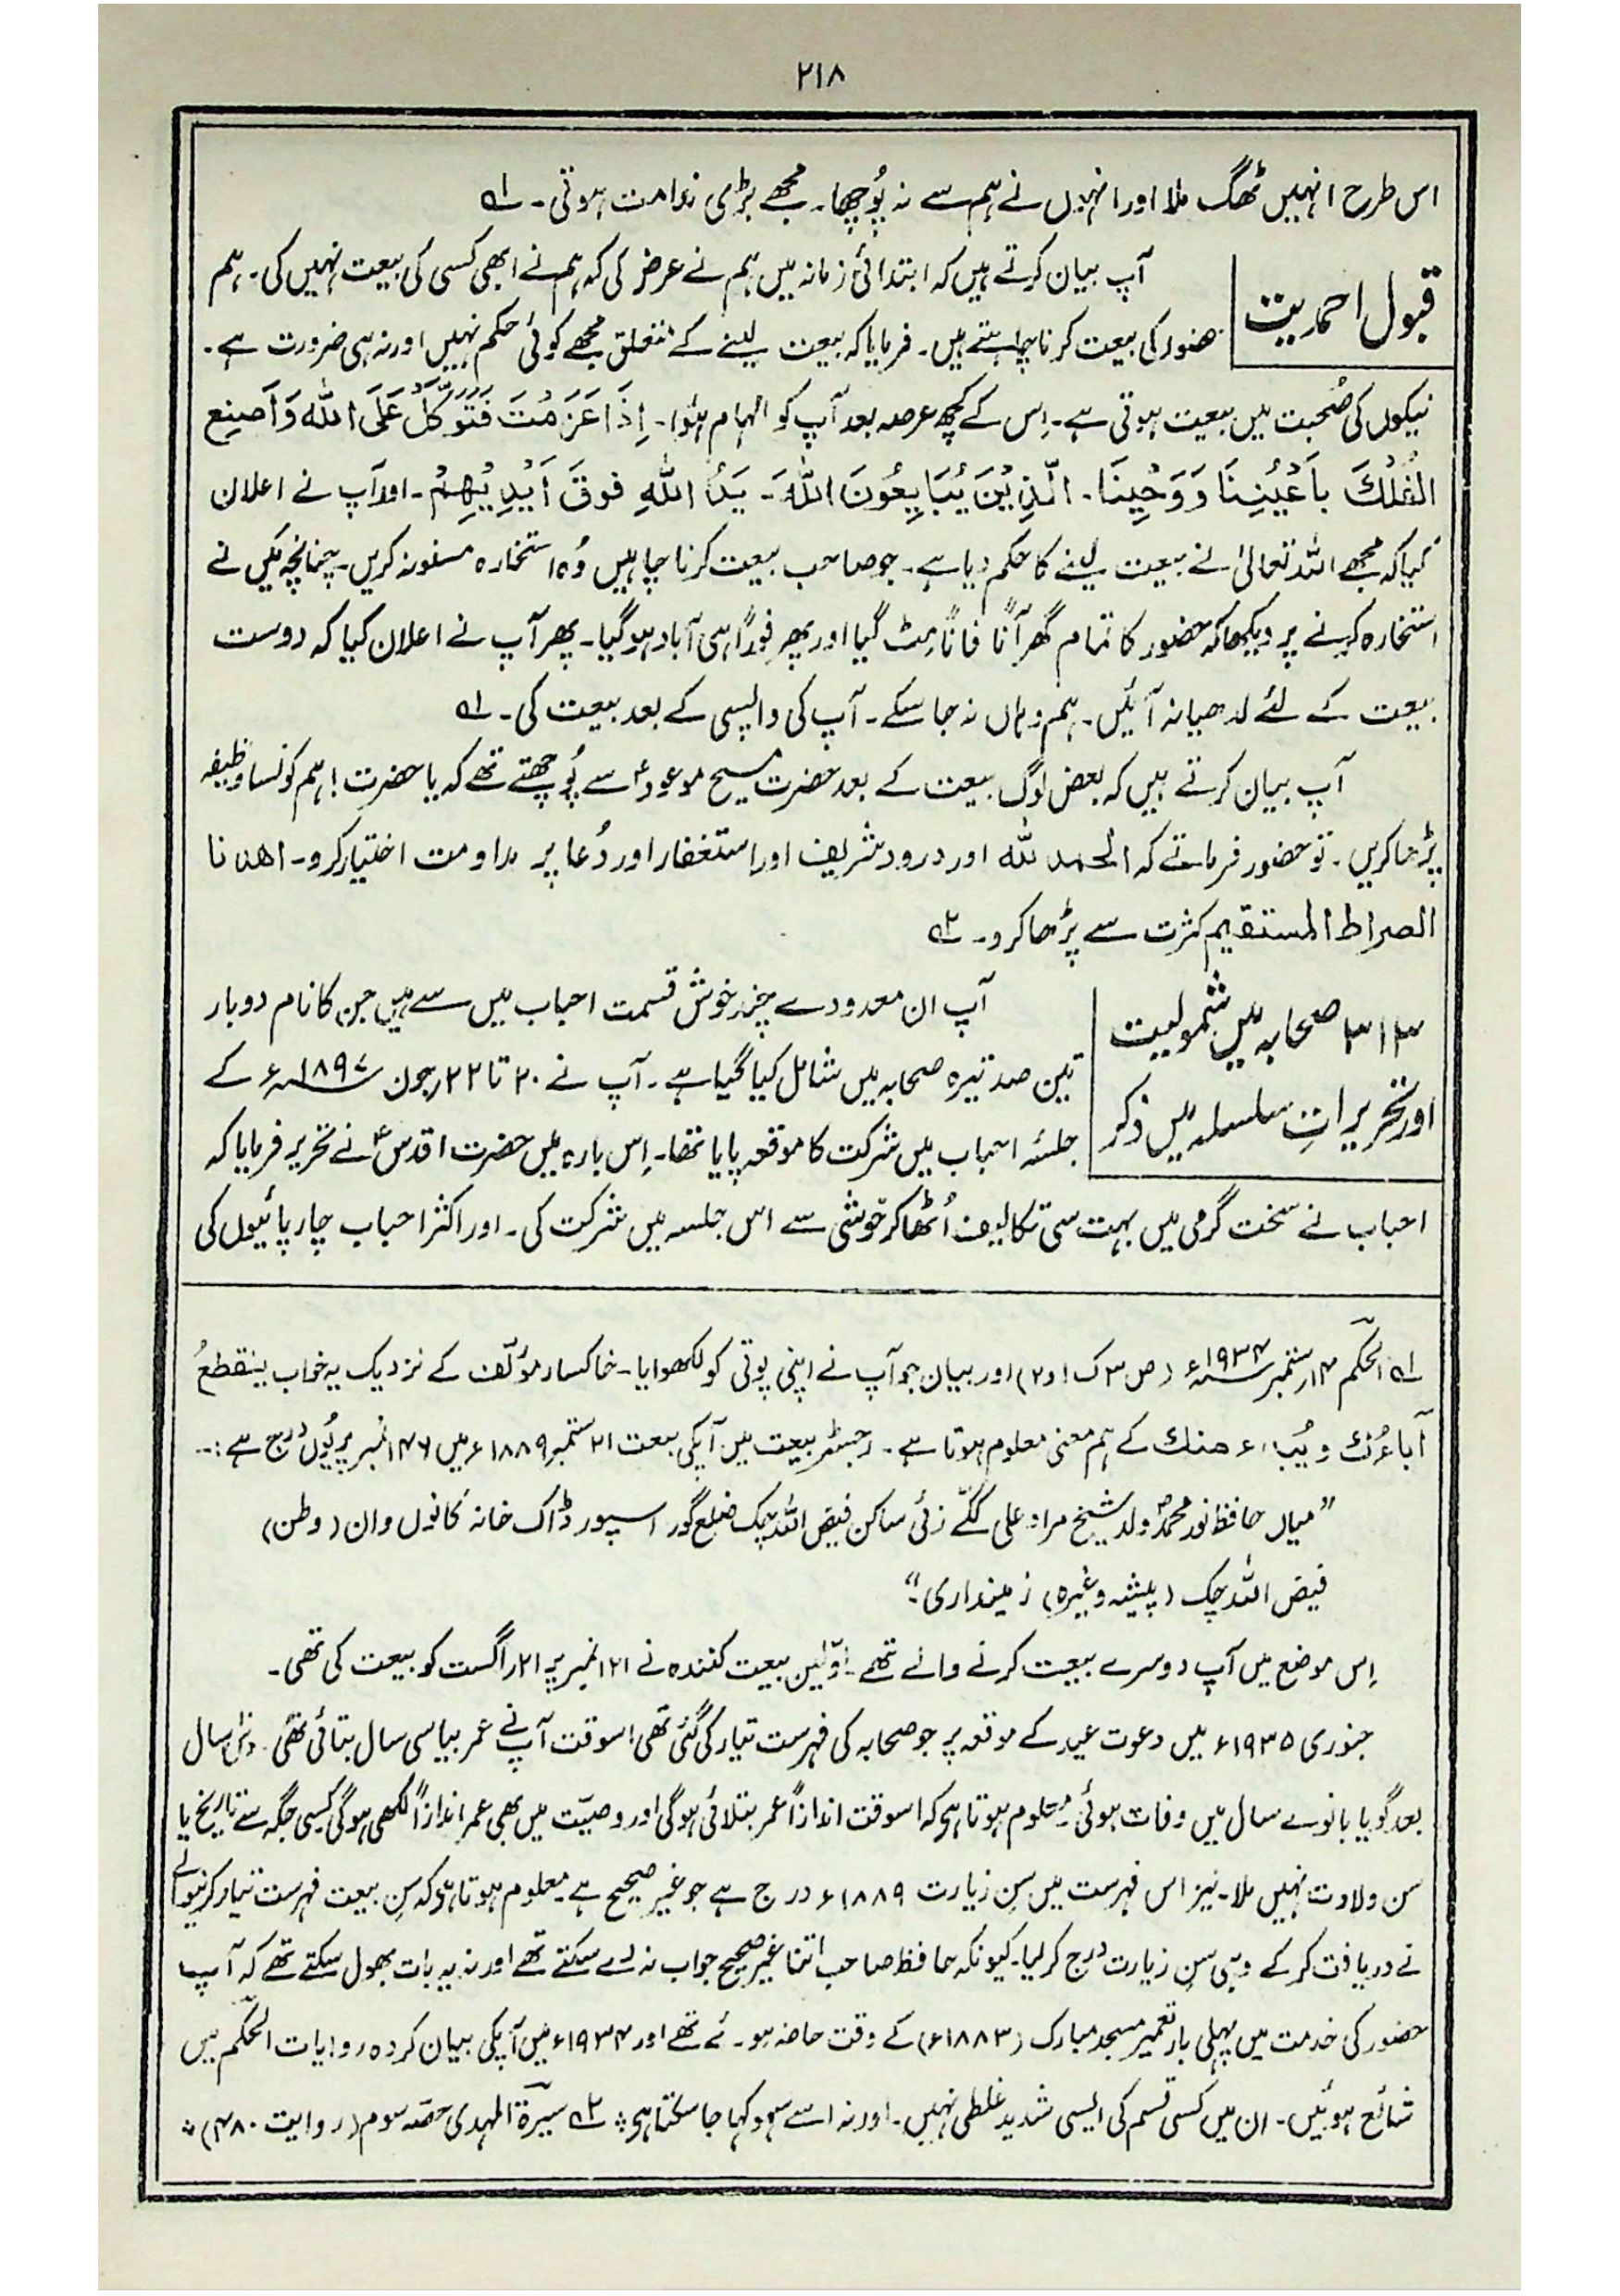 ۲۱۸
اس طرح انہیں ٹھگ ملا اور انہوں نے ہم سے نہ پُوچھا۔ مجھے بڑی ندامت ہوتی۔ ؎۱
قبول احمدیت
آپ بیان کرتے ہیں کہ ابتدائی زمانہ میں ہم نے عرض کی کہ ہم نے ابھی کسی کی بیعت نہیں کی۔ ہم
حضور کی بیعت کرنا چاہتے ہیں۔ فرمایا کہ بیعت لینے کے متعلق مجھے کوئی حکم نہیں اور نہ ہی ضرورت ہے۔
نیکوں کی صُحبت میں بیعت ہوتی ہے۔ اِس کے کچھ عرصہ بعد آپ کو الہام ہُوا۔ اِذَا عَزَمْتَ فَتَوَكَّلْ عَلَى اللّٰه وَاَصنِعِ
الْفُلْكَ بِاَعْيُنِنَا وَوَحْيِنَا۔ الَّذِيْنَ يُبَايِعُوْنَ اللّٰهَ۔ يَدُ اللّٰهِ فَوقَ اَيْدِيْهِمْ۔ اور آپ نے اعلان
کیا کہ مجھے اللہ تعالیٰ نے بیعت لینے کا حکم دیا ہے۔ جو صاحب بیعت کرنا چاہیں وُہ استخارہ مسنونہ کریں۔ چنانچہ مَیں نے
استخارہ کرنے پر دیکھا کہ حضور کا تمام گھر آناً فاناً مِٹ گیا اور پھر فوراً ہی آباد ہو گیا۔ پھر آپ نے اعلان کیا کہ دوست
بیعت کے لئے لدھیانہ آئیں۔ ہم وہاں نہ جا سکے۔ آپ کی واپسی کے بعد بیعت کی۔ ؎۱
آپ بیان کرتے ہیں کہ بعض لوگ بیعت کے بعد حضرت مسیح موعودؑ سے پُوچھتے تھے کہ یا حضرت! ہم کونسا وظیفہ
پڑھا کریں۔ تو حضور فرماتے کہ الحمد للّٰه اور درود شریف اور اِستغفار اور دُعا پر مداومت اختیار کرو۔ اھدنا
الصراط المستقیم کثرت سے پڑھا کرو۔ ؎۲
۳۱۳ صحابہ میں شمولیت
اور تحریراتِ سلسلہ میں ذکر
آپ ان معدودے چند خوش قسمت احباب میں سے ہیں جن کا نام دوبار
تین صد تیرہ صحابہ میں شامل کیا گیا ہے۔ آپ نے ۲۰ تا ۲۲ر جون ۱۸۹۷ء کے
جلسۂ احباب میں شرکت کا موقعہ پایا تھا۔ اِس بارہ میں حضرت اقدسؑ نے تحریر فرمایا کہ
احباب نے سخت گرمی میں بہت سی تکالیف اُٹھا کر خوشی سے اس جلسہ میں شرکت کی۔ اور اکثر احباب چارپائیوں کی
؎۱ الحکم ۱۴ر ستمبر ۱۹۳۴ء (ص ۳ ک ۱ و ۲) اور بیان جو آپ نے اپنی پوتی کو لکھوایا۔ خاکسار مؤلّف کے نزدیک یہ خواب ینقطعُ
آباءُك ویُبدء منك کے ہم معنی معلوم ہوتا ہے۔ رجسٹر بیعت میں آپکی بیعت ۲۱ ستمبر ۱۸۸۹ء میں ۱۴۶ نمبر پر یُوں درج ہے:۔
”میاں حافظ نور محمدؐ ولد شیخ مراد علی ککّے زئی ساکن فیض اللہ چک ضلع گورداسپور ڈاک خانہ کانہوں وان (وطن)
فیض اللہ چک (پیشہ وغیرہ) زمینداری۔“
اِس موضع میں آپ دوسرے بیعت کرنے والے تھے۔ اوّلین بیعت کنندہ نے ۱۲۱ نمبر پر ۲۱ر اگست کو بیعت کی تھی۔
جنوری ۱۹۳۵ء میں دعوت عید کے موقعہ پر جو صحابہ کی فہرست تیار کی گئی تھی اسوقت آپ نے عمر بیاسی سال بتائی تھی۔ دس سال
بعد گویا بانوے سال میں وفات ہوئی۔ معلوم ہوتا ہے کہ اسوقت اندازاً عمر بتلائی ہوگی اور وصیّت میں بھی عمر اندازاً لکھی ہوگی کسی جگہ سے تاریخ یا
سن ولادت نہیں ملا۔ نیز اس فہرست میں سن زیارت ۱۸۸۹ء درج ہے جو غیر صحیح ہے۔ معلوم ہوتا ہے کہ سن بیعت فہرست تیار کرنیوالے
نے دریافت کر کے وہی سن زیارت درج کر لیا۔ کیونکہ حافظ صاحب اتنا غیر صحیح جواب نہ دے سکتے تھے اور نہ یہ بات بھول سکتے تھے کہ آپ
حضور کی خدمت میں پہلی بار تعمیر مسجد مبارک (۱۸۸۳ء) کے وقت حاضر ہوئے تھے اور ۱۹۳۴ء میں آپکی بیان کردہ روایات الحکم میں
شائع ہوئیں۔ ان میں کسی قسم کی ایسی شدید غلطی نہیں۔ اور نہ اسے سہو کہا جا سکتا ہے؛ ؎۲ سیرۃ المہدی حصّہ سوم (روایت ۴۸۰) ؛